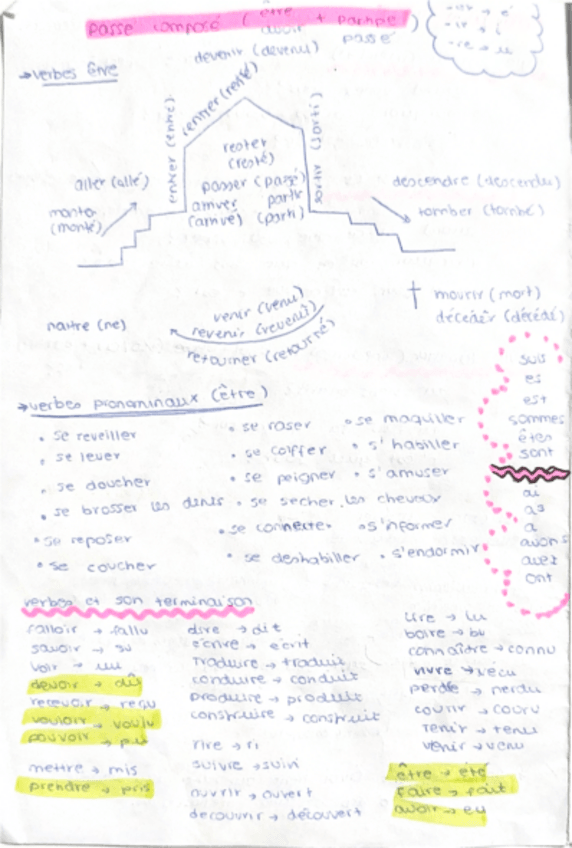 passé composé (être + participe)
avoir passé
-er → é
-ir → i
-re → u
→verbes être
devenir (devenu)
rentrer (rentré)
entrer (entré)
rester
(resté)
passer (passé)
arriver partir
(arrivé) (parti)
sortir (sorti)
aller (allé)
monter
(monté)
descendre (descendu)
tomber (tombé)
naitre (né)
venir (venu)
revenir (revenu)
retourner (retourné)
† mourir (mort)
décéder (décédé)
→verbes pronominaux (être)
• se reveiller
• se lever
• se doucher
• se brosser les dents
• se reposer
• se coucher
• se raser
• se coiffer
• se peigner
• se secher les cheveux
• se connecter
• se deshabiller
• se maquiller
• s'habiller
• s'amuser
• s'informer
• s'endormir
suis
es
est
sommes
êtes
sont
ai
as
a
avons
avez
ont
verbes et son terminaison
falloir → fallu
savoir → su
voir → vu
devoir → dû
recevoir → reçu
vouloir → voulu
pouvoir → pu
mettre → mis
prendre → pris
dire → dit
écrire → écrit
traduire → traduit
conduire → conduit
produire → produit
construire → construit
rire → ri
suivre → suivi
ouvrir → ouvert
decouvrir → découvert
lire → lu
boire → bu
connaître → connu
vivre → vécu
perdre → perdu
courir → couru
tenir → tenu
venir → venu
être → été
faire → fait
avoir → eu